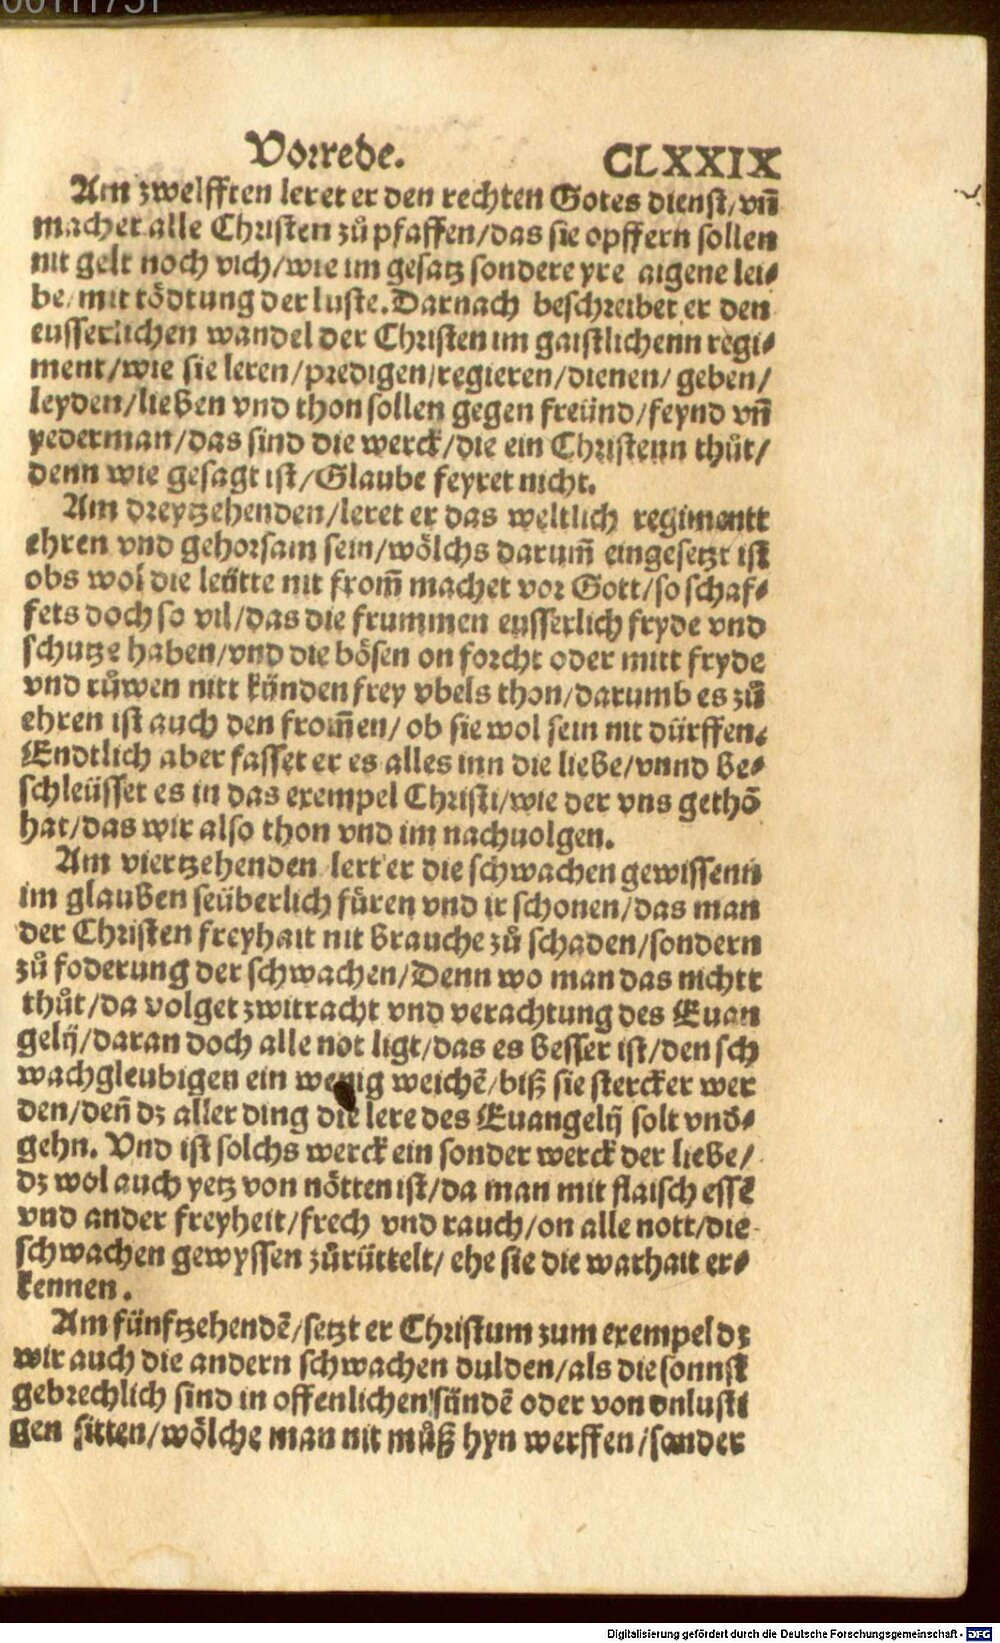 00111751
Vorrede. CLXXIX
Am zwelfften leret er den rechten Gotes dienst/vn̄
machet alle Christen zů pfaffen/das sie opffern sollen
nit gelt noch vich/wie im gesatz sondere yre aigene lei⸗
be/mit tödtung der luste. Darnach beschreibet er den
eusserlichen wandel der Christen im gaistlichenn regi⸗
ment/wie sie leren/predigen/regieren/dienen/geben/
leyden/lieben vnd thon sollen gegen freünd/feynd vn̄
yederman/das sind die werck/die ein Christenn thůt/
denn wie gesagt ist/Glaube feyret nicht.
Am dreytzehenden/leret er das weltlich regimentt
ehren vnd gehorsam sein/wölchs darum̄ eingesetzt ist
obs wol die leütte nit from̄ machet vor Gott/so schaf⸗
fets doch so vil/das die frummen eusserlich fryde vnd
schutze haben/vnd die bösen on forcht oder mitt fryde
vnd růwen nitt künden frey vbels thon/darumb es zů
ehren ist auch den from̄en/ob sie wol sein nit dürffen.
Endtlich aber fasset er es alles inn die liebe/vnnd be⸗
schleüsset es in das exempel Christi/wie der vns gethō
hat/das wir also thon vnd im nachuolgen.
Am viertzehenden lert er die schwachen gewissenn
im glauben seüberlich füren vnd ir schonen/das man
der Christen freyhait nit brauche zů schaden/sondern
zů foderung der schwachen/Denn wo man das nichtt
thůt/da volget zwitracht vnd verachtung des Euan
gelij/daran doch alle not ligt/das es besser ist/den sch
wachgleubigen ein wenig weichē/biß sie stercker wer
den/den̄ dz aller ding die lere des Euangelij solt vnd⸗
gehn. Vnd ist solchs werck ein sonder werck der liebe/
dz wol auch yetz von nötten ist/da man mit flaisch essē
vnd ander freyheit/frech vnd rauch/on alle nott/die
schwachen gewyssen zůrüttelt/ehe sie die warhait er⸗
kennen.
Am fünftzehendē/setzt er Christum zum exempel dz
wir auch die andern schwachen dulden/als die sonnst
gebrechlich sind in offenlichen sündē oder von vnlusti
gen sitten/wölche man nit můß hyn werffen/sonder
Digitalisierung gefördert durch die Deutsche Forschungsgemeinschaft - DFG